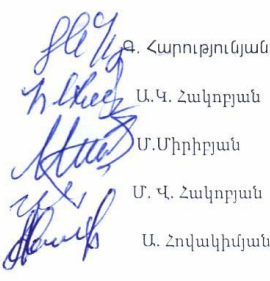 Գ. Հարությունյան
Ա.Կ. Հակոբյան
Մ.Միրիբյան
Մ. Վ. Հակոբյան
Ա. Հովակիմյան